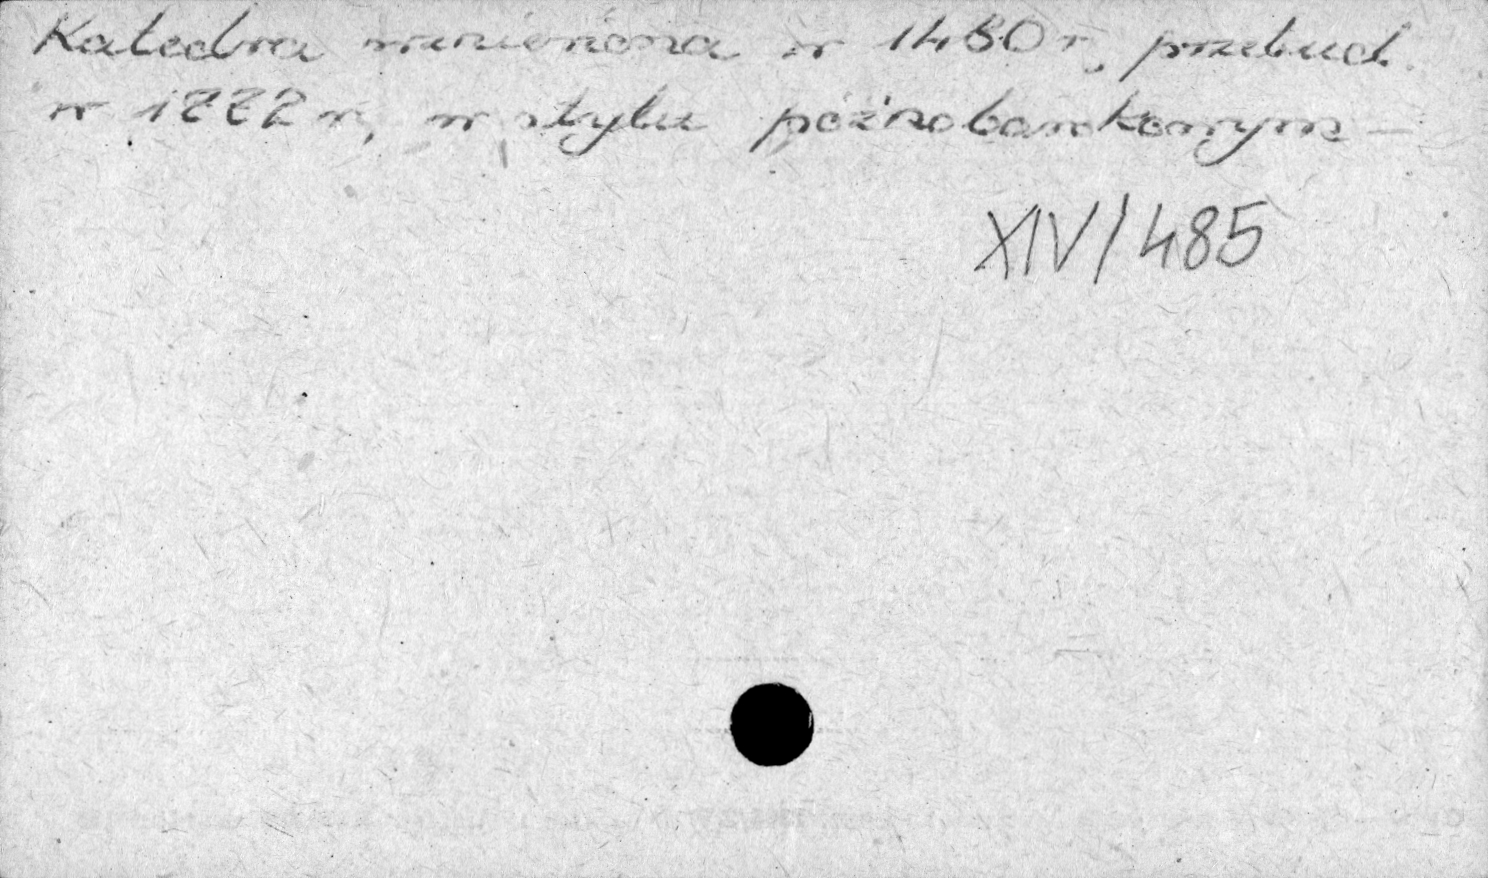 Katedra wzniesiona w 1480 r., przebud.
w 1772 r., w stylu późnobarokowym –
XIV/485